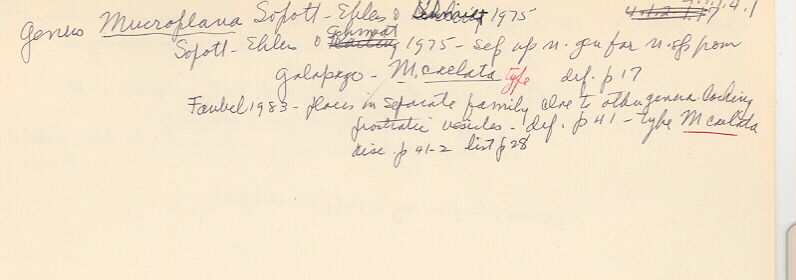 Genus Mucroplana Sopott-Ehlers & Schmidt 1975
4.1.2.1.17
Sopott-Ehlers & Schmidt 1975 - sep up n. gen for n. sp from
Galapago - M. caelata type def. p 17
Faubel 1983 - places in separate family close to other genera lacking
prostatic vesicles - def. p 41 - type M caelata
disc. p 41-2 list p 28